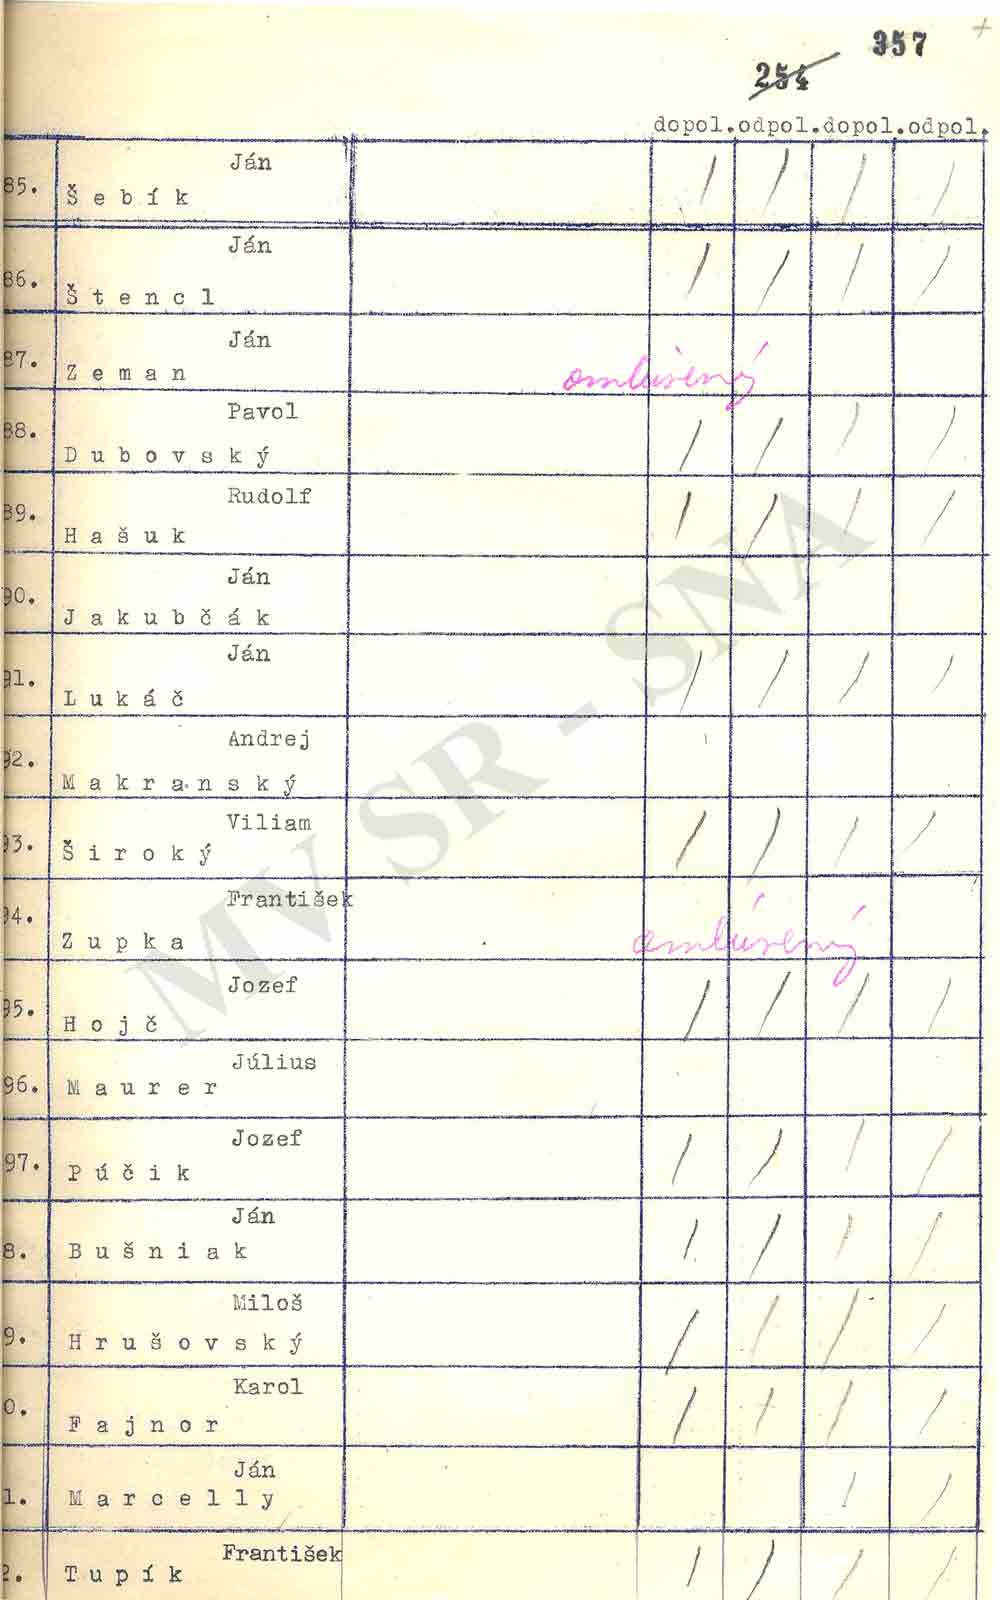 357
254
dopol. odpol. dopol. odpol.
85. Ján
Šebík
86. Ján
Štencl
87. Ján
Zeman omlúvený
88. Pavol
Dubovský
89. Rudolf
Hašuk
90. Ján
Jakubčák
91. Ján
Lukáč
92. Andrej
Makranský
93. Viliam
Široký
94. František
Zupka omlúvený
95. Jozef
Hojč
96. Július
Maurer
97. Jozef
Púčik
8. Ján
Bušniak
9. Miloš
Hrušovský
0. Karol
Fajnor
1. Ján
Marcelly
2. František
Tupík
MV SR - SNA